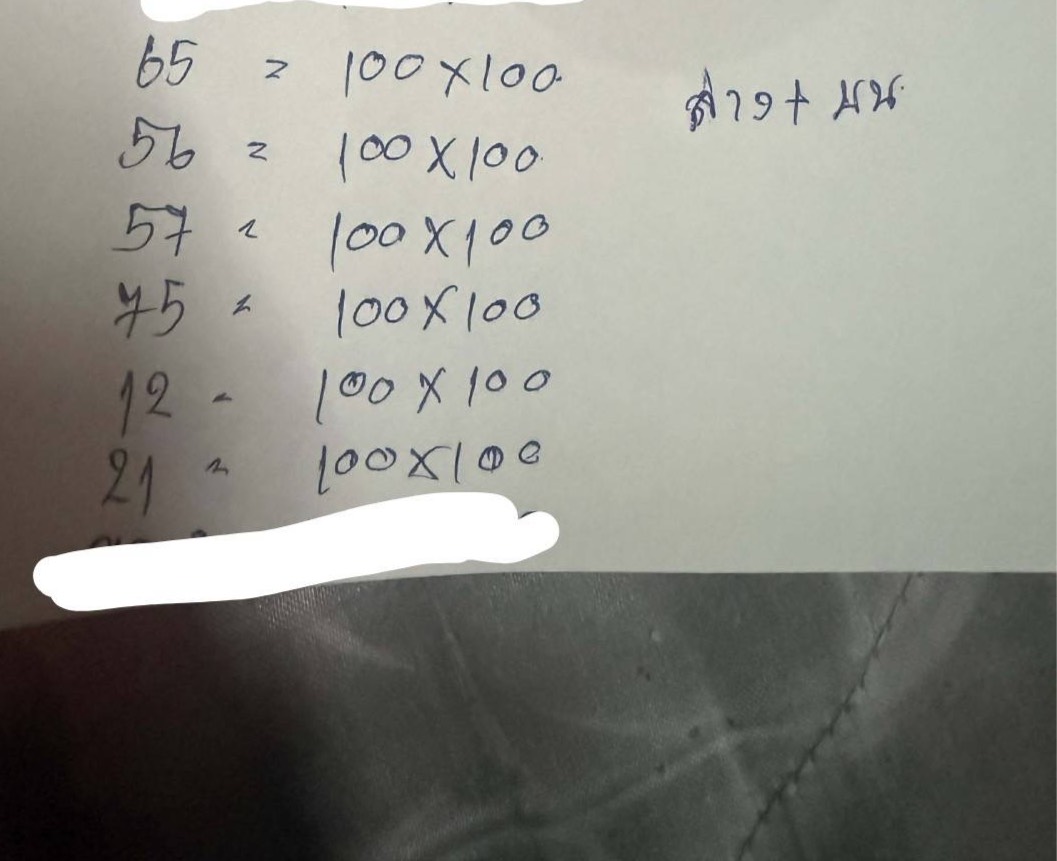 65 = 100×100
ล่าง + บน
56 = 100×100
57 = 100×100
75 = 100×100
12 - 100×100
21 = 100×100